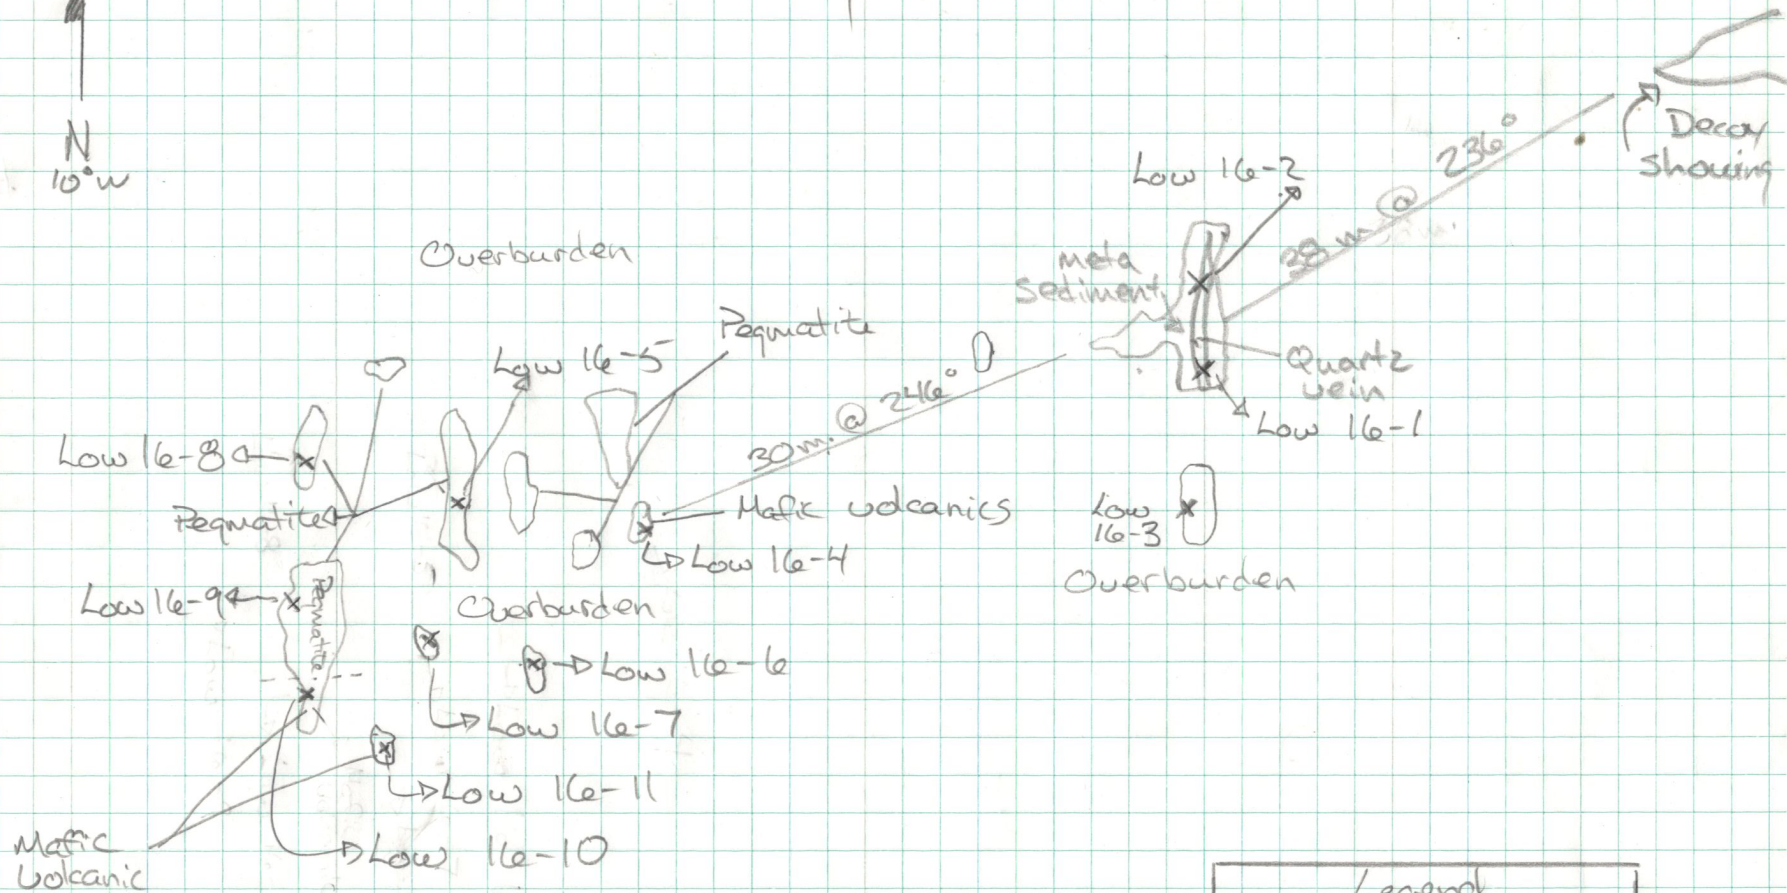 N
10°W
Decoy
Showing
236°
@
38 m
Low 16-2
Overburden
meta
sediment
Pegmatite
Low 16-5
Quartz
vein
30m. @ 246°
Low 16-1
Low 16-8
Pegmatite
Mafic volcanics
Low
16-3
Low 16-4
Overburden
Low 16-9
Pegmatite
Overburden
Low 16-6
Low 16-7
Low 16-11
Mafic
Volcanic
Low 16-10
Legend